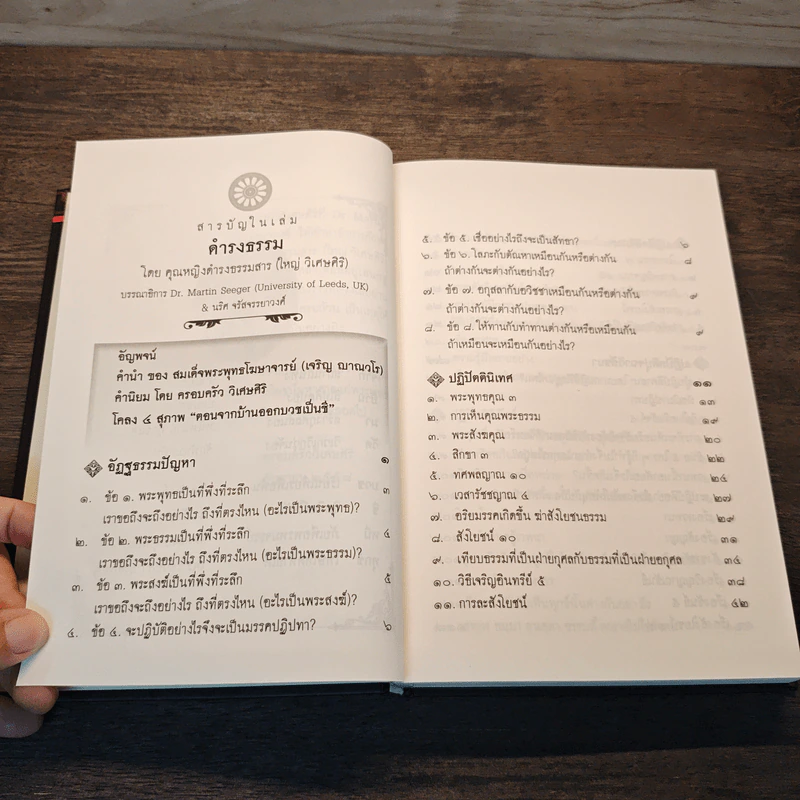 สารบัญในเล่ม
ดำรงธรรม
โดย คุณหญิงดำรงธรรมสาร (ใหญ่ วิเศษศิริ)
บรรณาธิการ Dr. Martin Seeger (University of Leeds, UK)
& นริศ จรัสจรรยาวงศ์
อัญพจน์
คำนำ ของ สมเด็จพระพุทธโฆษาจารย์ (เจริญ ญาณวโร)
คำนิยม โดย ครอบครัว วิเศษศิริ
โคลง ๔ สุภาพ “ตอนจากบ้านออกบวชเป็นชี”
อัฏฐธรรมปัญหา ๑
๑. ข้อ ๑. พระพุทธเป็นที่พึ่งที่ระลึก ๓
เราขอถึงจะถึงอย่างไร ถึงที่ตรงไหน (อะไรเป็นพระพุทธ)?
๒. ข้อ ๒. พระธรรมเป็นที่พึ่งที่ระลึก ๔
เราขอถึงจะถึงอย่างไร ถึงที่ตรงไหน (อะไรเป็นพระธรรม)?
๓. ข้อ ๓. พระสงฆ์เป็นที่พึ่งที่ระลึก ๕
เราขอถึงจะถึงอย่างไร ถึงที่ตรงไหน (อะไรเป็นพระสงฆ์)?
๔. ข้อ ๔. จะปฏิบัติอย่างไรจึงจะเป็นมรรคปฏิปทา? ๖
๕. ข้อ ๕. เชื่ออย่างไรถึงจะเป็นสัทธา? ๖
๖. ข้อ ๖. โลภะกับตัณหาเหมือนกันหรือต่างกัน ๘
ถ้าต่างกันจะต่างกันอย่างไร?
๗. ข้อ ๗. อกุสลากับอวิชชาเหมือนกันหรือต่างกัน ๙
ถ้าต่างกันจะต่างกันอย่างไร?
๘. ข้อ ๘. ให้ทานกับทำทานต่างกันหรือเหมือนกัน ๙
ถ้าเหมือนจะเหมือนกันอย่างไร?
ปฏิปัตตินิเทศ ๑๑
๑. พระพุทธคุณ ๓ ๑๓
๒. การเห็นคุณพระธรรม ๑๙
๓. พระสังฆคุณ ๒๐
๔. สิกขา ๓ ๒๒
๕. ทศพลญาณ ๑๐ ๒๔
๖. เวสารัชชญาณ ๔ ๒๗
๗. อริยมรรคเกิดขึ้น ฆ่าสังโยชนธรรม ๒๙
๘. สังโยชน์ ๑๐ ๓๑
๙. เทียบธรรมที่เป็นฝ่ายกุศลกับธรรมที่เป็นฝ่ายอกุศล ๓๔
๑๐. วิธีเจริญอินทรีย์ ๕ ๓๘
๑๑. การละสังโยชน์ ๔๒